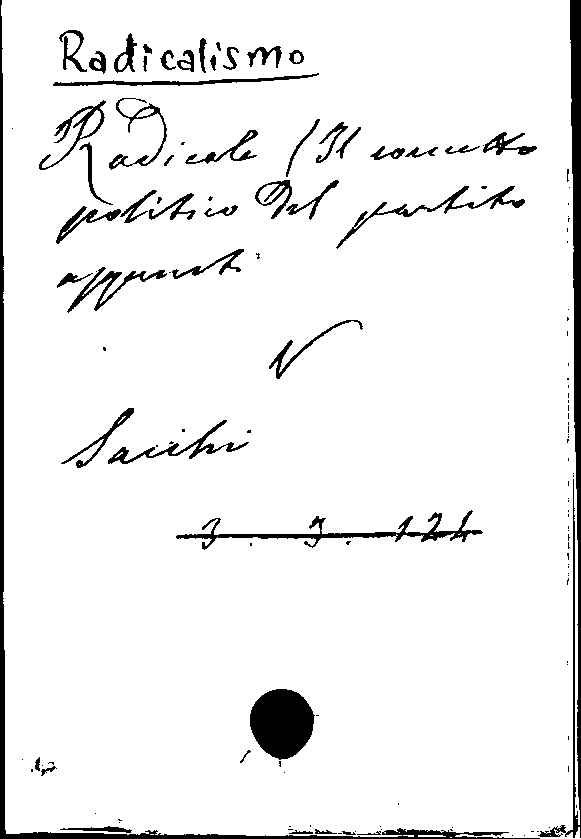 Radicalismo
Radicale (Il concetto
politico del partito
appunti
V
Sacchi
3 . 3 . 124